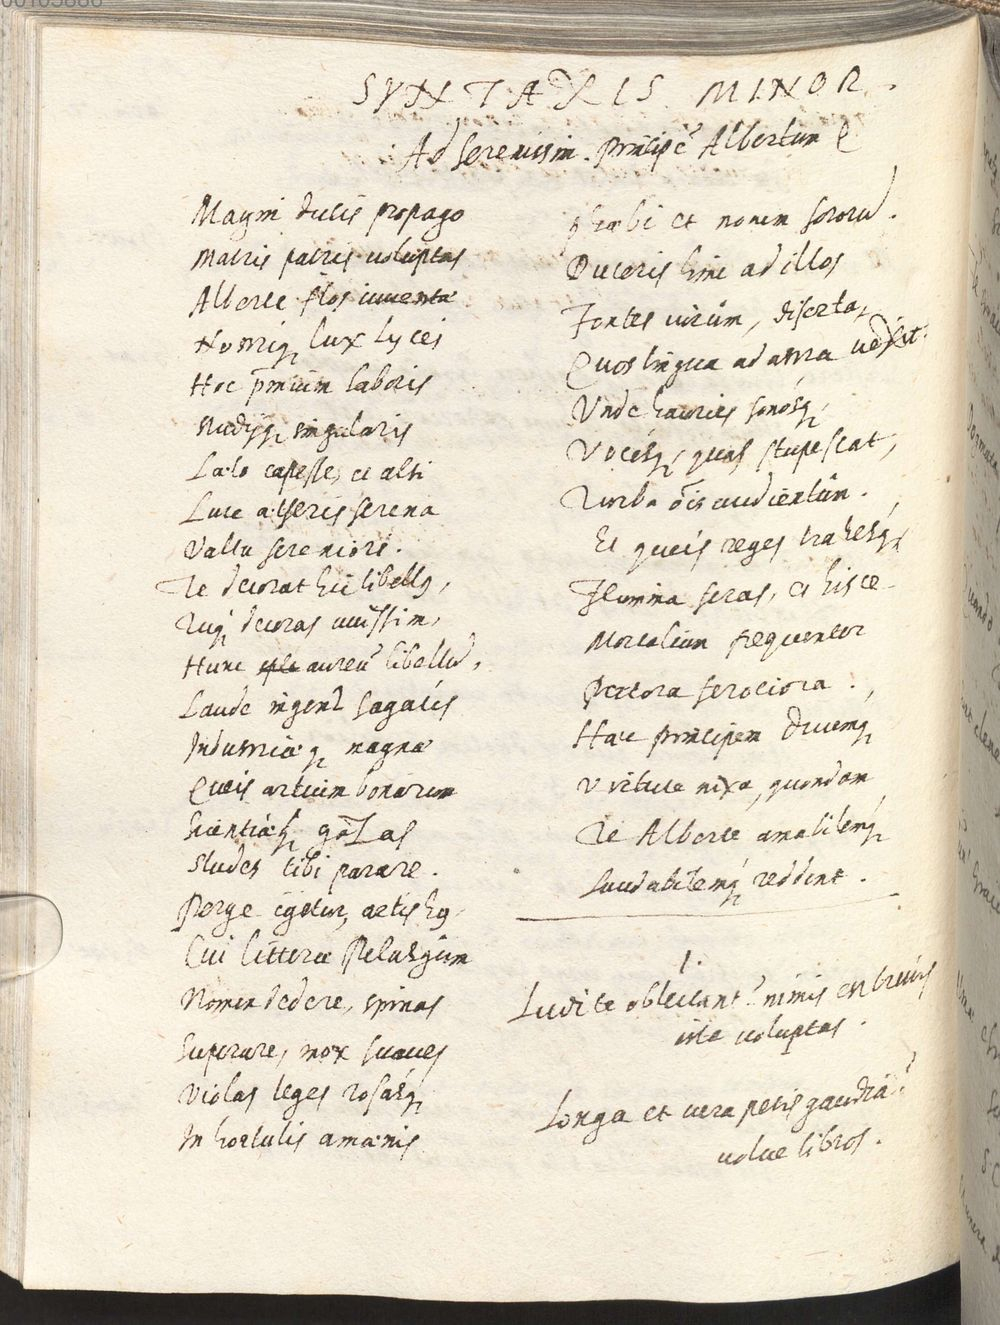 SYNTAXIS MINOR.
Ad Sereniss̃m. Prīncip̃ē Albertum
Magni ducis propago
Matris patris voluptas
Alberte flos iuuentæ
Nostriq; lux lycei
Hoc p̄mium laboris
studijq; singularis
Læto capesse, et alti
Luce ætheris serena
Vultu sereniore.
Te decorat hic libellq,
Tuq; decoras
Hunc aureū libellū,
Laude ingenī sagacis
Industriæq; magnæ
Queis artium bonarum
Scientiásq;
Studes tibi parare.
Perge igitur, artis hq,
Cui litteræ Pelasgûm
Nomen dedere, spinas
Superare, mox suaues
Violas leges rosásq;
In hortulis amœnis
Phœbi et nouem sororū.
Duceris hinc ad illos
Fontes virûm, diserta,
Quos lingua ad astra vexit.
Vnde hauries sonosq;
Vocésq;, quas stupescat,
Turba ōis audientûm.
Et queis reges trahesq;
Flumina feras, et hisce
Mortalium frequenter
Pectora ferociora.
Hæc principem ducemq;
Virtute nixa, quondam
Te Alberte amabilemq;
Laudabilemq; reddent.
1.
Ludi te oblectant? nimis en breuis
ista voluptas.
Longa et vera petis gaudia?
volue libros.